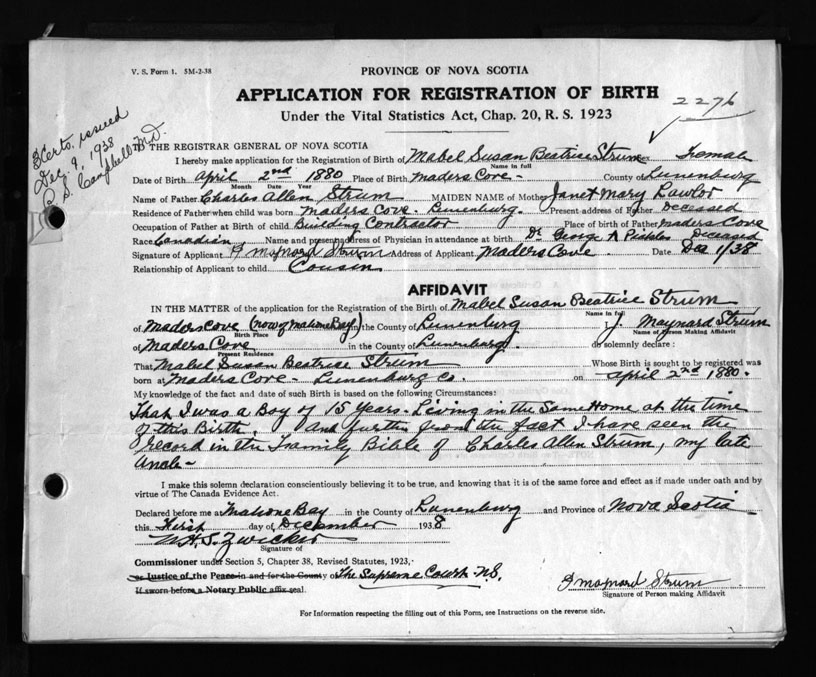 V. S. Form 1. 5M-2-38
PROVINCE OF NOVA SCOTIA
APPLICATION FOR REGISTRATION OF BIRTH
2276
Under the Vital Statistics Act, Chap. 20, R. S. 1923
Certo. issued
Dec 9, 1938
S. Campbell M.D.
TO THE REGISTRAR GENERAL OF NOVA SCOTIA
I hereby make application for the Registration of Birth of Mabel Susan Beatrice Strum Sex Female
Name in full
Date of Birth April 2nd 1880 Place of Birth Maders Cove - County of Lunenburg
Month Date Year
Name of Father Charles Allen Strum MAIDEN NAME of Mother Janet Mary Lawlor
Residence of Father when child was born Maders Cove Lunenburg. Present address of Father Deceased
Occupation of Father at Birth of child Building Contractor Place of birth of Father Maders Cove
Race Canadian Name and present address of Physician in attendance at birth Dr George A Deceased
Signature of Applicant J Maynard Strum Address of Applicant Maders Cove Date Dec 1/38
Relationship of Applicant to child Cousin
AFFIDAVIT
IN THE MATTER of the application for the Registration of the Birth of Mabel Susan Beatrice Strum
Name in full
of Maders Cove (now of Mahone Bay) in the County of Lunenburg J. Maynard Strum
Birth Place Name of Person Making Affidavit
of Maders Cove in the County of Lunenburg. do solemnly declare :
Present Residence
That Mabel Susan Beatrise Strum Whose Birth is sought to be registered was
born at Maders Cove - Lunenburg Co. on April 2nd 1880.
My knowledge of the fact and date of such Birth is based on the following Circumstances:
That I was a Boy of 15 years - Living in the Same Home at the time
of this Birth. And further from the fact I have seen the
record in the Family Bible of Charles Allen Strum, my late
Uncle -
I make this solemn declaration conscientiously believing it to be true, and knowing that it is of the same force and effect as if made under oath and by
virtue of The Canada Evidence Act.
Declared before me at Mahone Bay in the County of Lunenburg and Province of Nova Scotia
this First day of December 1938
H. S. Zwicker
Signature of
Commissioner under Section 5, Chapter 38, Revised Statutes, 1923,
or Justice of the Peace in and for the County of The Supreme Court N.S.
If sworn before a Notary Public affix seal.
J Maynard Strum
Signature of Person making Affidavit
For Information respecting the filling out of this Form, see Instructions on the reverse side.